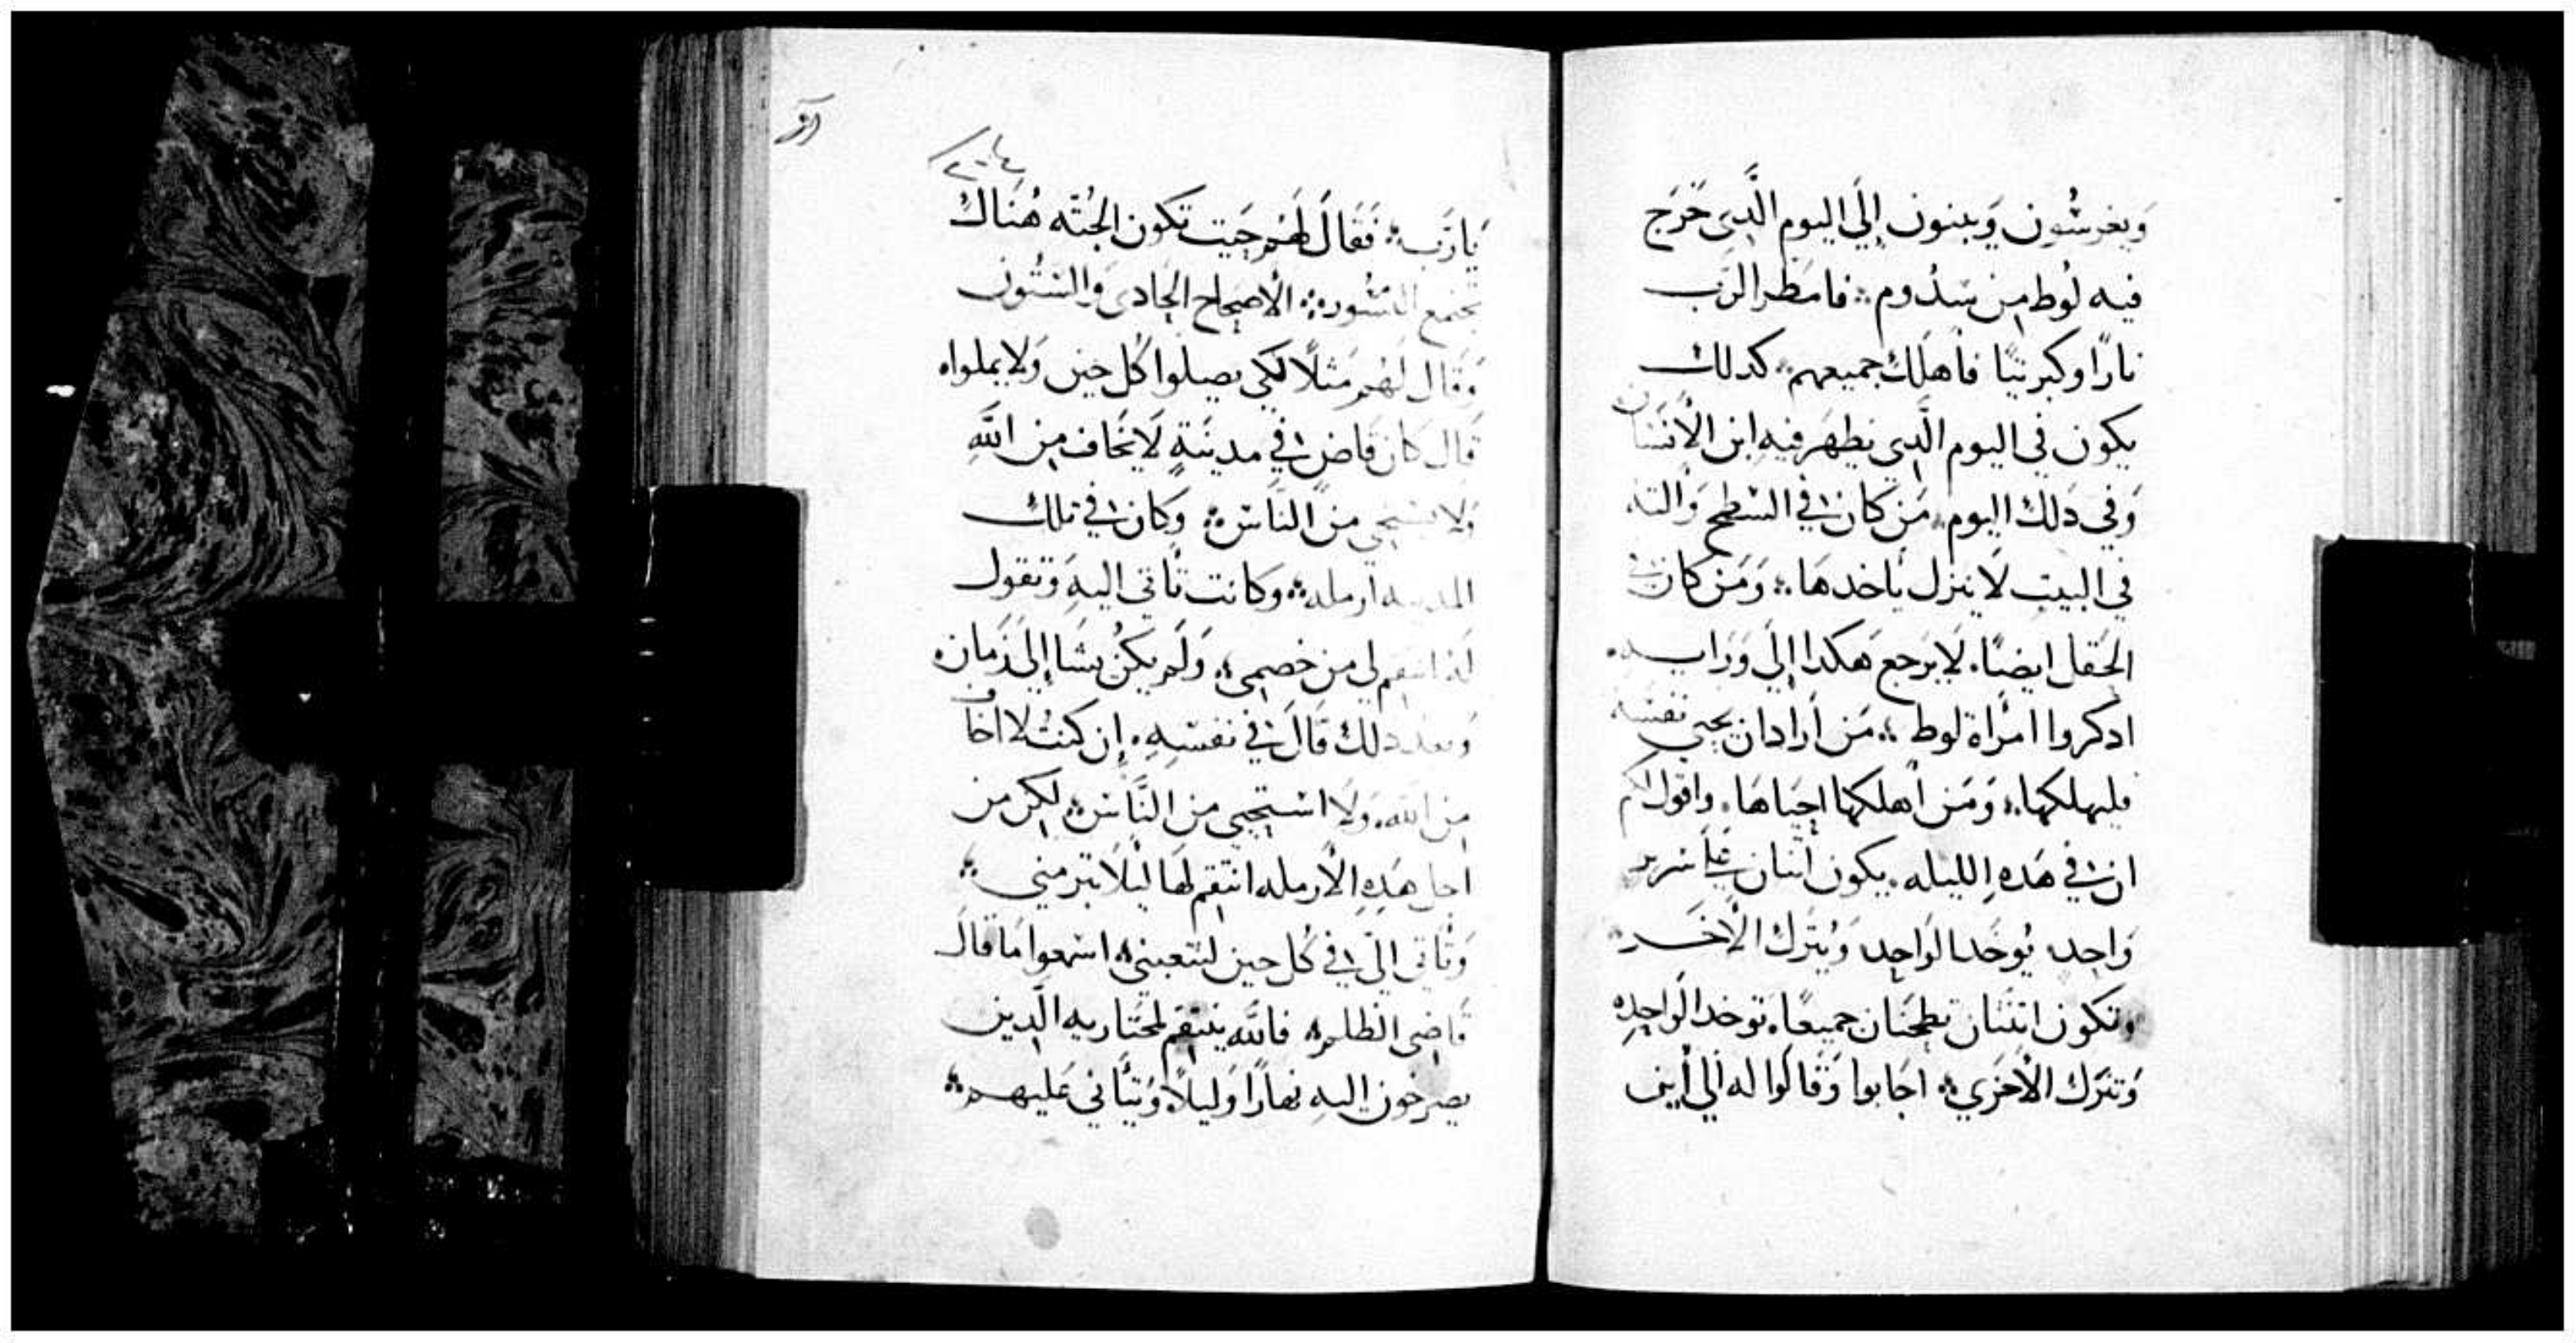 وَيغرسُون وَيبنون إلَي اليوم الَّدِي خَرَج
فيه لوُط مِن سَدُوم ؞ فامَطر الرَب
نارًا وكبريتًا فأهلَك جميعهم ؞ كدلك
يكون في اليوم الَّدِي يظهَر فيهِ ابن الأنسَان
وَفي دَلك اليوم ؞ مَن كان في السَطح وَالته
في البيت لا ينزل ياخدهَا ؞ وَمَن كان في
الحَقل ايضًا . لا يرجع هَكدا إلَي وَرَايـه .
ادكروا امرَاة لوط ؞ مَن أرَادان يحيي نفسَه
فليهلكها ؞ وَمَن أهلكها احيَاهَا . واقول لكم
ان في هَدهِ الليله . يكون اتنان عَلَي سَرير
وَاحِد يُوخَد الوَاحِد وَيُترَك الأخَـر ؞
وتكون اتنتَان تطحَنان جميعًا . توخد الوَاحِده
وَتترَك الأخرَي ؞ اجَابوا وَقَالوا له إلي أين
يَارَب ؞ فَقَالَ لَهُم حَيت تكون الجُتَه هُنَاكَ
تجتمع النسُوره ؞ الأصحَاح الحَادي وَالستُون
وَقَال لَهُم مَثلًا لكي يصِلوا كُل حين وَلا يملواه
قَال كان قَاضٍ في مدينَةٍ لَا يَخَاف مِن اللَّه
وَلا يستحيي من النَاسَ ؞ وَكان في تلك
المدينه ارمله ؞ وَكانت تَأتي اليهِ وَتقول
لَهُ انتقم لي من خصمِي ؞ وَلَم يكُن يشَا إلَى زمَان
وَبعد دلك قَالَ في نفسِهِ . إن كنتُ لا اخاف
مِن الله . وَلَا استَحيي مِن النَّاسَ ؞ لكِن من
اجل هَدِهِ الأرمله انتقِم لهَا ليلا تبرمني ؞
وَتَأتي اليّ في كُل حين لتتعبني ؞ اسمعوا مَا قال
قَاضي الظلم ؞ فالله ينتقِم لمختَاريه الَّدين
يصرخون اليهِ نهارًا وَليلًا وَيتَأني عَليهـم ؞